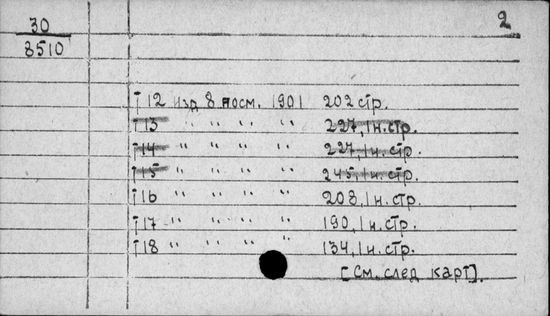 2
30
8510
Т 12 изд 8 посм. 1901 202 стр.
Т 13 " " " " 227, 1 н. стр.
Т 14 " " " " 227, 1 н. стр.
Т 15 " " " " 245, 1 н. стр.
Т 16 " " " " 208, 1 н. стр.
Т 17 " " " " 190, 1 н. стр.
Т 18 " " " " 134, 1 н. стр.
[См. след карт].